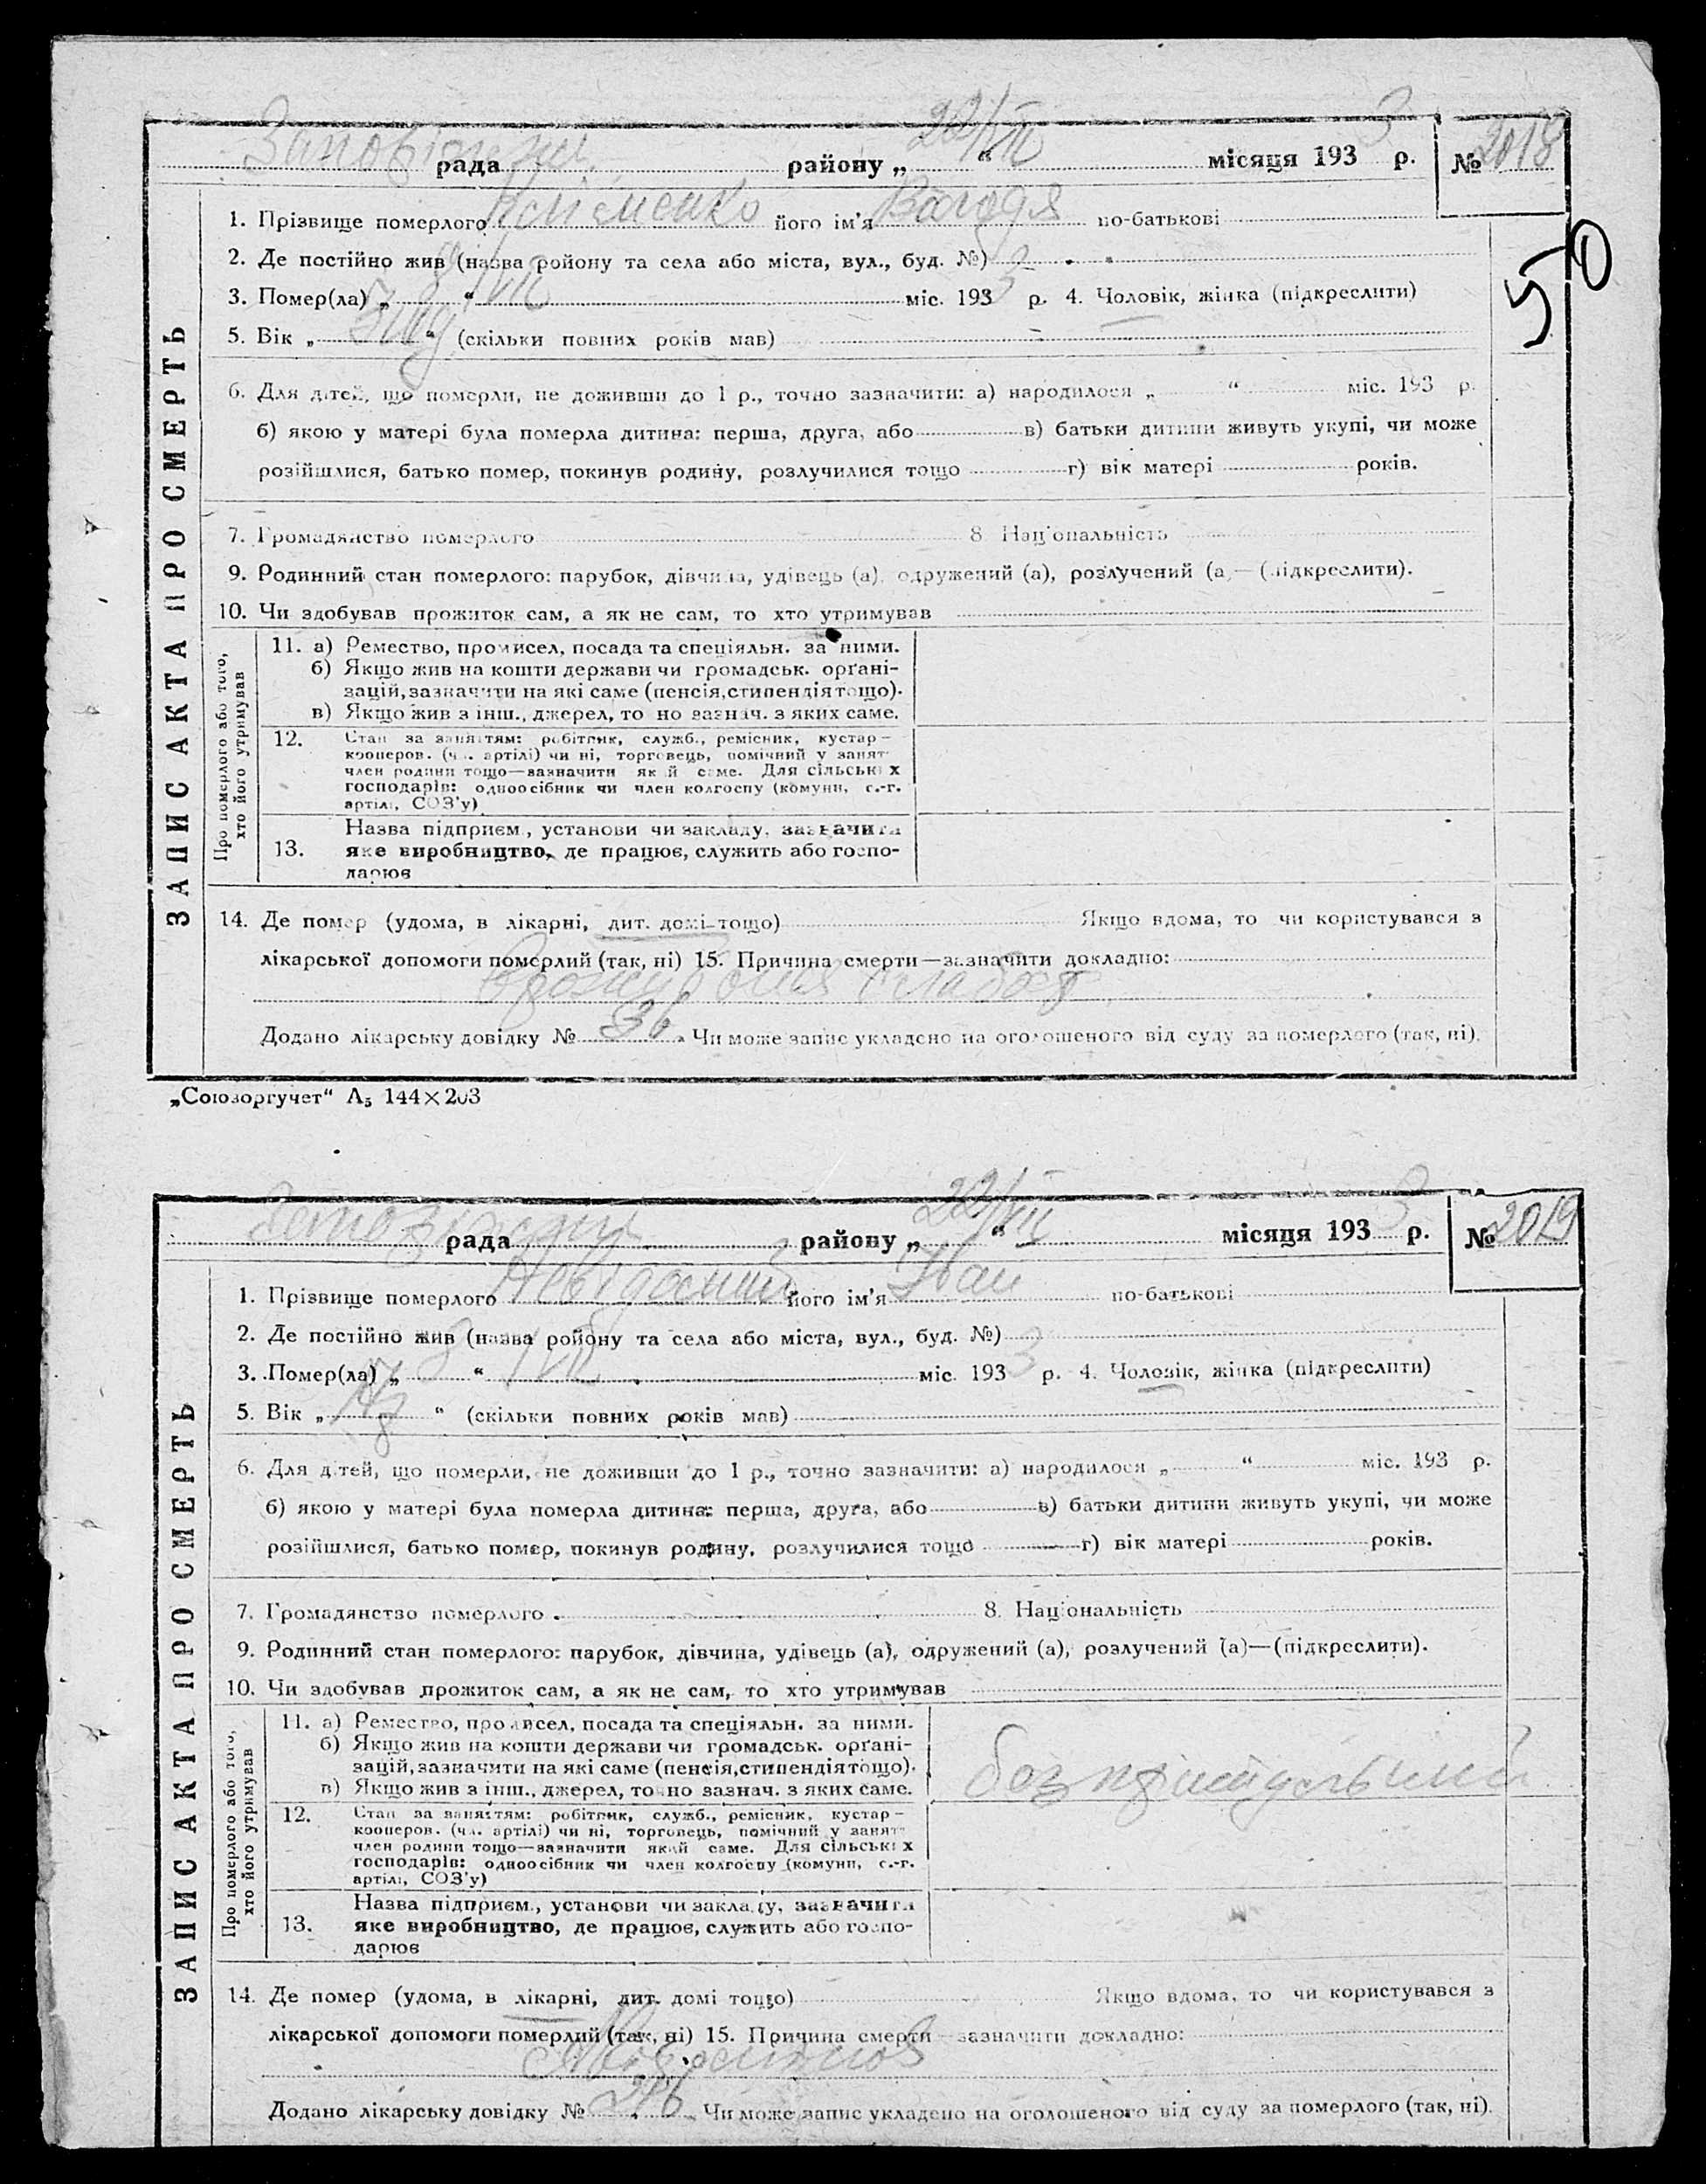 рада району „ 22/VII “ місяця 193 3 р. № 2018
1. Прізвище померлого Кліменко його ім'я Володя по-батькові
2. Де постійно жив (назва ройону та села або міста, вул., буд. №)
3. Помер(ла) „ 8 “ VII міс. 193 3 р. 4. Чоловік, жінка (підкреслити)
5. Вік „ “ (скільки повних років мав)
50
6. Для дітей, що померли, не доживши до 1 р., точно зазначити: а) народилося „ “ міс. 193 р.
б) якою у матері була померла дитина: перша, друга, або в) батьки дитини живуть укупі, чи може
розійшлися, батько помер, покинув родину, розлучилися тощо г) вік матері років.
7. Громадянство померлого 8 Національність
9. Родинний стан померлого: парубок, дівчина, удівець (а), одружений (а), розлучений (а)—(підкреслити).
10. Чи здобував прожиток сам, а як не сам, то хто утримував
ЗАПИС АКТА ПРО СМЕРТЬ
Про померлого або того,
хто його утримував
11. а) Ремество, промисел, посада та спеціяльн. за ними.
б) Якщо жив на кошти держави чи громадськ. орґані-
зацій, зазначити на які саме (пенсія, стипендія тощо).
в) Якщо жив з інш., джерел, точно зазнач. з яких саме.
12. Стан за заняттям: робітник, служб., ремісник, кустар—
кооперов. (чл. артілі) чи ні, торговець, помічний у занят
член родини тощо—зазначити який саме. Для сільських
господарів: одноосібник чи член колгоспу (комуни, с.-г.
артілі, СОЗ'у)
13. Назва підприєм., установи чи закладу, зазначити
яке виробництво, де працює, служить або госпо-
дарює
14. Де помер (удома, в лікарні, дит. домі тощо) Якщо вдома, то чи користувався з
лікарської допомоги померлий (так, ні) 15. Причина смерти—зазначити докладно:
слабост
Додано лікарську довідку № 36 Чи може запис укладено на оголошеного від суду за померлого (так, ні).
„Союзоргучет“ А₅ 144×203
рада району „ 22/VII “ місяця 193 3 р. № 2019
1. Прізвище померлого Невідомий його ім'я Іван по-батькові
2. Де постійно жив (назва ройону та села або міста, вул., буд. №)
3. Помер(ла) „ 8 “ VII міс. 193 3 р. 4. Чоловік, жінка (підкреслити)
5. Вік „ “ (скільки повних років мав)
6. Для дітей, що померли, не доживши до 1 р., точно зазначити: а) народилося „ “ міс. 193 р.
б) якою у матері була померла дитина: перша, друга, або в) батьки дитини живуть укупі, чи може
розійшлися, батько помер, покинув родину, розлучилися тощо г) вік матері років.
7. Громадянство померлого 8. Національність
9. Родинний стан померлого: парубок, дівчина, удівець (а), одружений (а), розлучений (а)—(підкреслити).
10. Чи здобував прожиток сам, а як не сам, то хто утримував
ЗАПИС АКТА ПРО СМЕРТЬ
Про померлого або того,
хто його утримував
11. а) Ремество, промисел, посада та спеціяльн. за ними.
б) Якщо жив на кошти держави чи громадськ. орґані-
зацій, зазначити на які саме (пенсія, стипендія тощо).
в) Якщо жив з інш., джерел, точно зазнач. з яких саме.
12. Стан за заняттям: робітник, служб., ремісник, кустар—
кооперов. (чл. артілі) чи ні, торговець, помічний у занят
член родини тощо—зазначити який саме. Для сільських
господарів: одноосібник чи член колгоспу (комуни, с.-г.
артілі, СОЗ'у)
13. Назва підприєм., установи чи закладу, зазначити
яке виробництво, де працює, служить або госпо-
дарює
14. Де помер (удома, в лікарні, дит. домі тощо) Якщо вдома, то чи користувався з
лікарської допомоги померлий (так, ні) 15. Причина смерти—зазначити докладно:
Додано лікарську довідку № Чи може запис укладено на оголошеного від суду за померлого (так, ні).